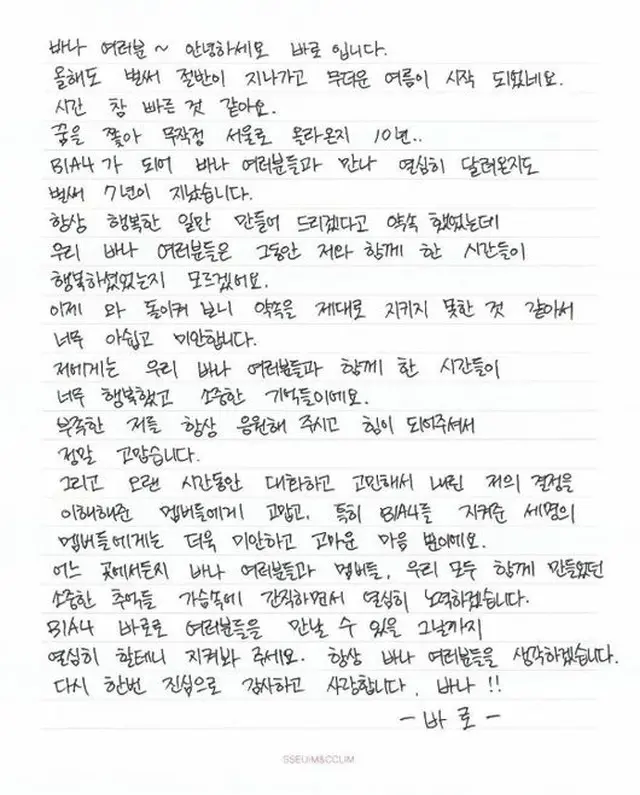 바나 여러분~ 안녕하세요 바로입니다.
올해도 벌써 절반이 지나가고 무더운 여름이 시작 되었네요.
시간 참 빠른 것 같아요.
꿈을 쫓아 무작정 서울로 올라온지 10년..
B1A4가 되어 바나 여러분들과 만나 열심히 달려온지도
벌써 7년이 지났습니다.
항상 행복한 일만 만들어 드리겠다고 약속 했었는데
우리 바나 여러분들은 그동안 저와 함께 한 시간들이
행복하셨었는지 모르겠어요.
이제 와 돌이켜 보니 약속을 제대로 지키지 못한 것 같아서
너무 아쉽고 미안합니다.
저에게는 우리 바나 여러분들과 함께 한 시간들이
너무 행복했고 소중한 기억들이에요.
부족한 저를 항상 응원해 주시고 힘이 되어주셔서
정말 고맙습니다.
그리고 오랜 시간동안 대화하고 고민해서 내린 저의 결정을
이해해준 멤버들에게 고맙고, 특히 B1A4를 지켜준 세명의
멤버들에게는 더욱 미안하고 고마운 마음 뿐이에요.
어느 곳에서든지 바나 여러분들과 멤버들, 우리 모두 함께 만들었던
소중한 추억들 가슴속에 간직하면서 열심히 노력하겠습니다.
B1A4 바로로 여러분들을 만날 수 있을 그날까지
열심히 할테니 지켜봐 주세요. 항상 바나 여러분들을 생각하겠습니다.
다시 한번 진심으로 감사하고 사랑합니다. 바나!!
-바로-
SSEUIM&CCLIM